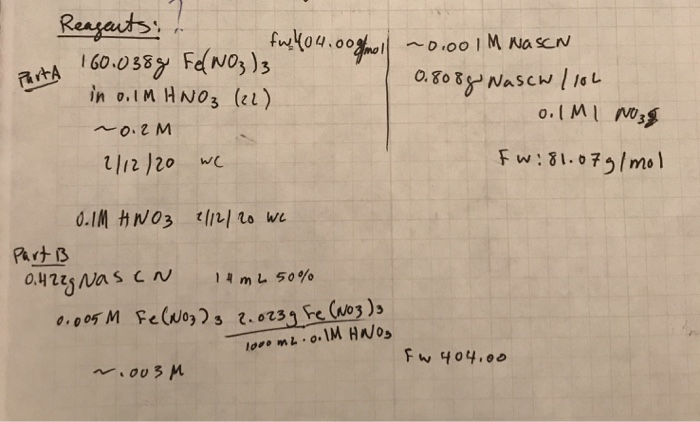 Reagents:
Part A
160.038g Fe(NO3)3 fw: 404.00g/mol
in 0.1M HNO3 (2L)
~0.2M
2/12/20 WC
0.1M HNO3 2/12/20 WC
~0.001M NaSCN
0.808g NaSCN / 10L
0.1M
Fw: 81.07g/mol
Part B
0.422g NaSCN 14mL 50%
0.005M Fe(NO3)3 2.023g Fe(NO3)3
1000mL. 0.1M HNO3
~.003M
Fw 404.00